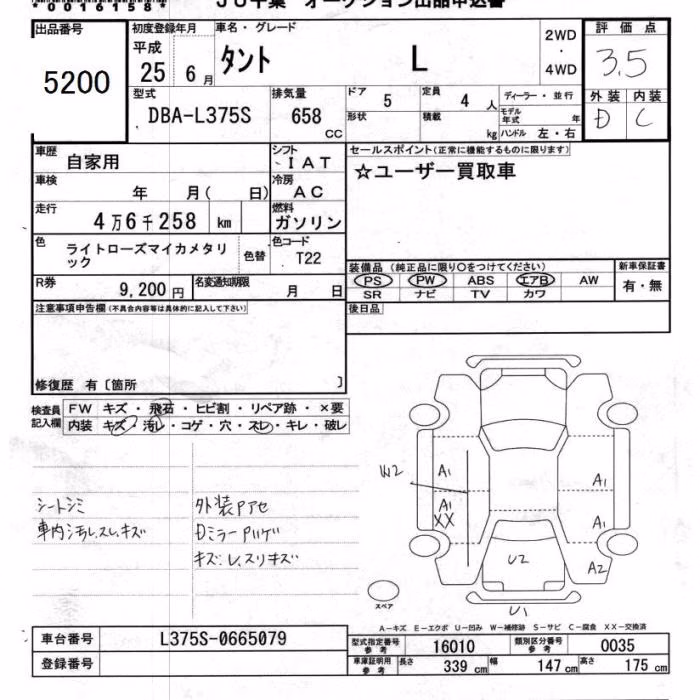 *00161581*
JU千葉 オークション出品申込書
出品番号
5200
初度登録年月
平成
25 6月
車名・グレード
タント L
2WD
・
4WD
評価点
3.5
外装 内装
D C
型式
DBA-L375S
排気量
658
CC
ドア 5
形状
定員 4人
積載 kg
ディーラー・並行
モデル年式 年
ハンドル 左・右
車歴 自家用
シフト
IAT
セールスポイント(正常に機能するものに限ります)
☆ユーザー買取車
車検 年 月( 日)
冷房
AC
走行 4万6千258 km
燃料
ガソリン
色
ライトローズマイカメタリック
色替
色コード
T22
装備品 (純正品に限り○をつけてください)
PS PW ABS エアB AW
SR ナビ TV カワ
新車保証書
有・無
R券 9,200円
名変通知期限 月 日
後日品
注意事項申告欄(不具合内容等は具体的に記入して下さい)
修復歴 有〔箇所 〕
検査員記入欄
FW キズ・飛石・ヒビ割・リペア跡・×要
内装 キズ・汚レ・コゲ・穴・スレ・キレ・破レ
シートシミ
車内汚レ、スレ、キズ
外装Pアセ
DミラーPハゲ
キズ:レ、スリキズ
W2
A1
A1
XX
A1
A1
A2
U2
U1
スペア
A-キズ E-エクボ U-凹み W-補修跡 S-サビ C-腐食 XX-交換済
車台番号 L375S-0665079
登録番号
型式指定番号 参考 16010
類別区分番号 参考 0035
車庫証明用 参考 長さ 339cm 幅 147cm 高さ 175cm